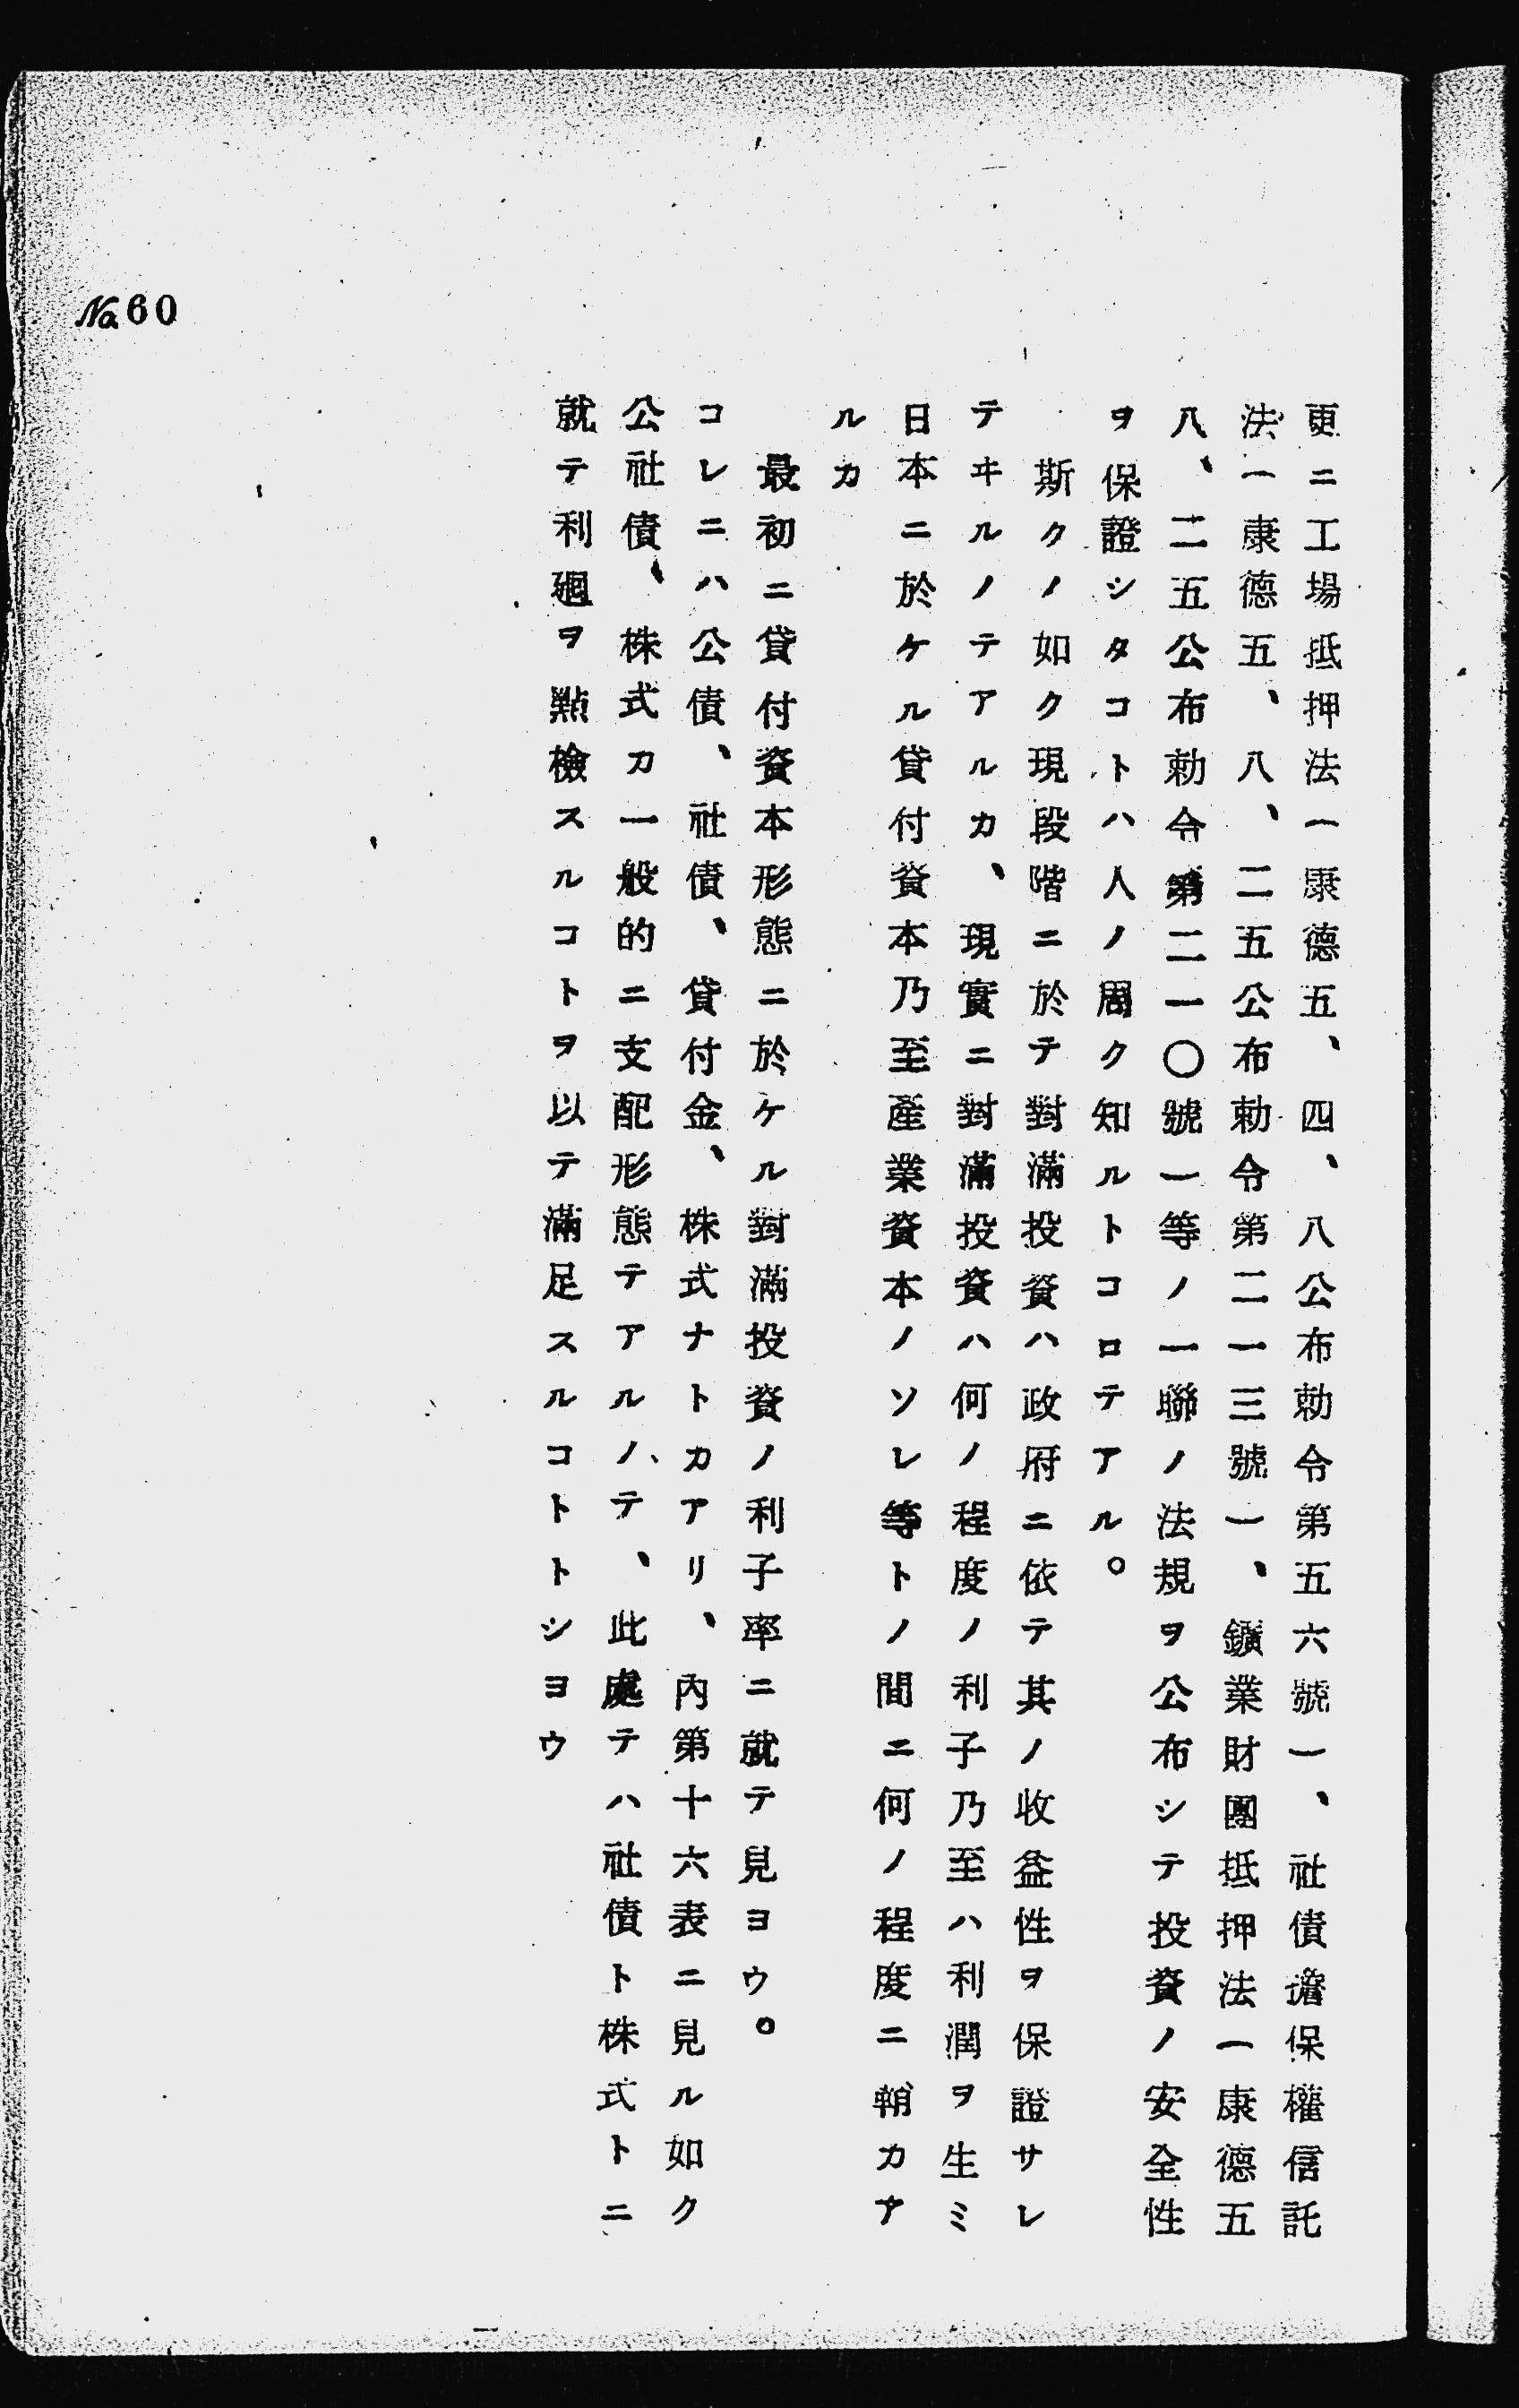 更ニ工場抵押法一康德五、四、八公布勅令第五六號一、社債擔保權信託
法一康德五、八、二五公布勅令第二一三號一、鑛業財團抵押法一康德五
八、二五公布勅令第二一〇號一等ノ一聯ノ法規ヲ公布シテ投資ノ安全性
ヲ保證シタコトハ人ノ周ク知ルトコロテアル。
斯クノ如ク現段階ニ於テ對滿投資ハ政府ニ依テ其ノ收益性ヲ保證サレ
テヰルノテアルカ、現實ニ對滿投資ハ何ノ程度ノ利子乃至ハ利潤ヲ生ミ
日本ニ於ケル貸付資本乃至產業資本ノソレ等トノ間ニ何ノ程度ニ鞘カア
ルカ
最初ニ貸付資本形態ニ於ケル對滿投資ノ利子率ニ就テ見ヨウ。
コレニハ公債、社債、貸付金、株式ナトカアリ、內第十六表ニ見ル如ク
公社債、株式カ一般的ニ支配形態テアルノテ、此處テハ社債ト株式トニ
就テ利廻ヲ點檢スルコトヲ以テ滿足スルコトトシヨウ
No.60